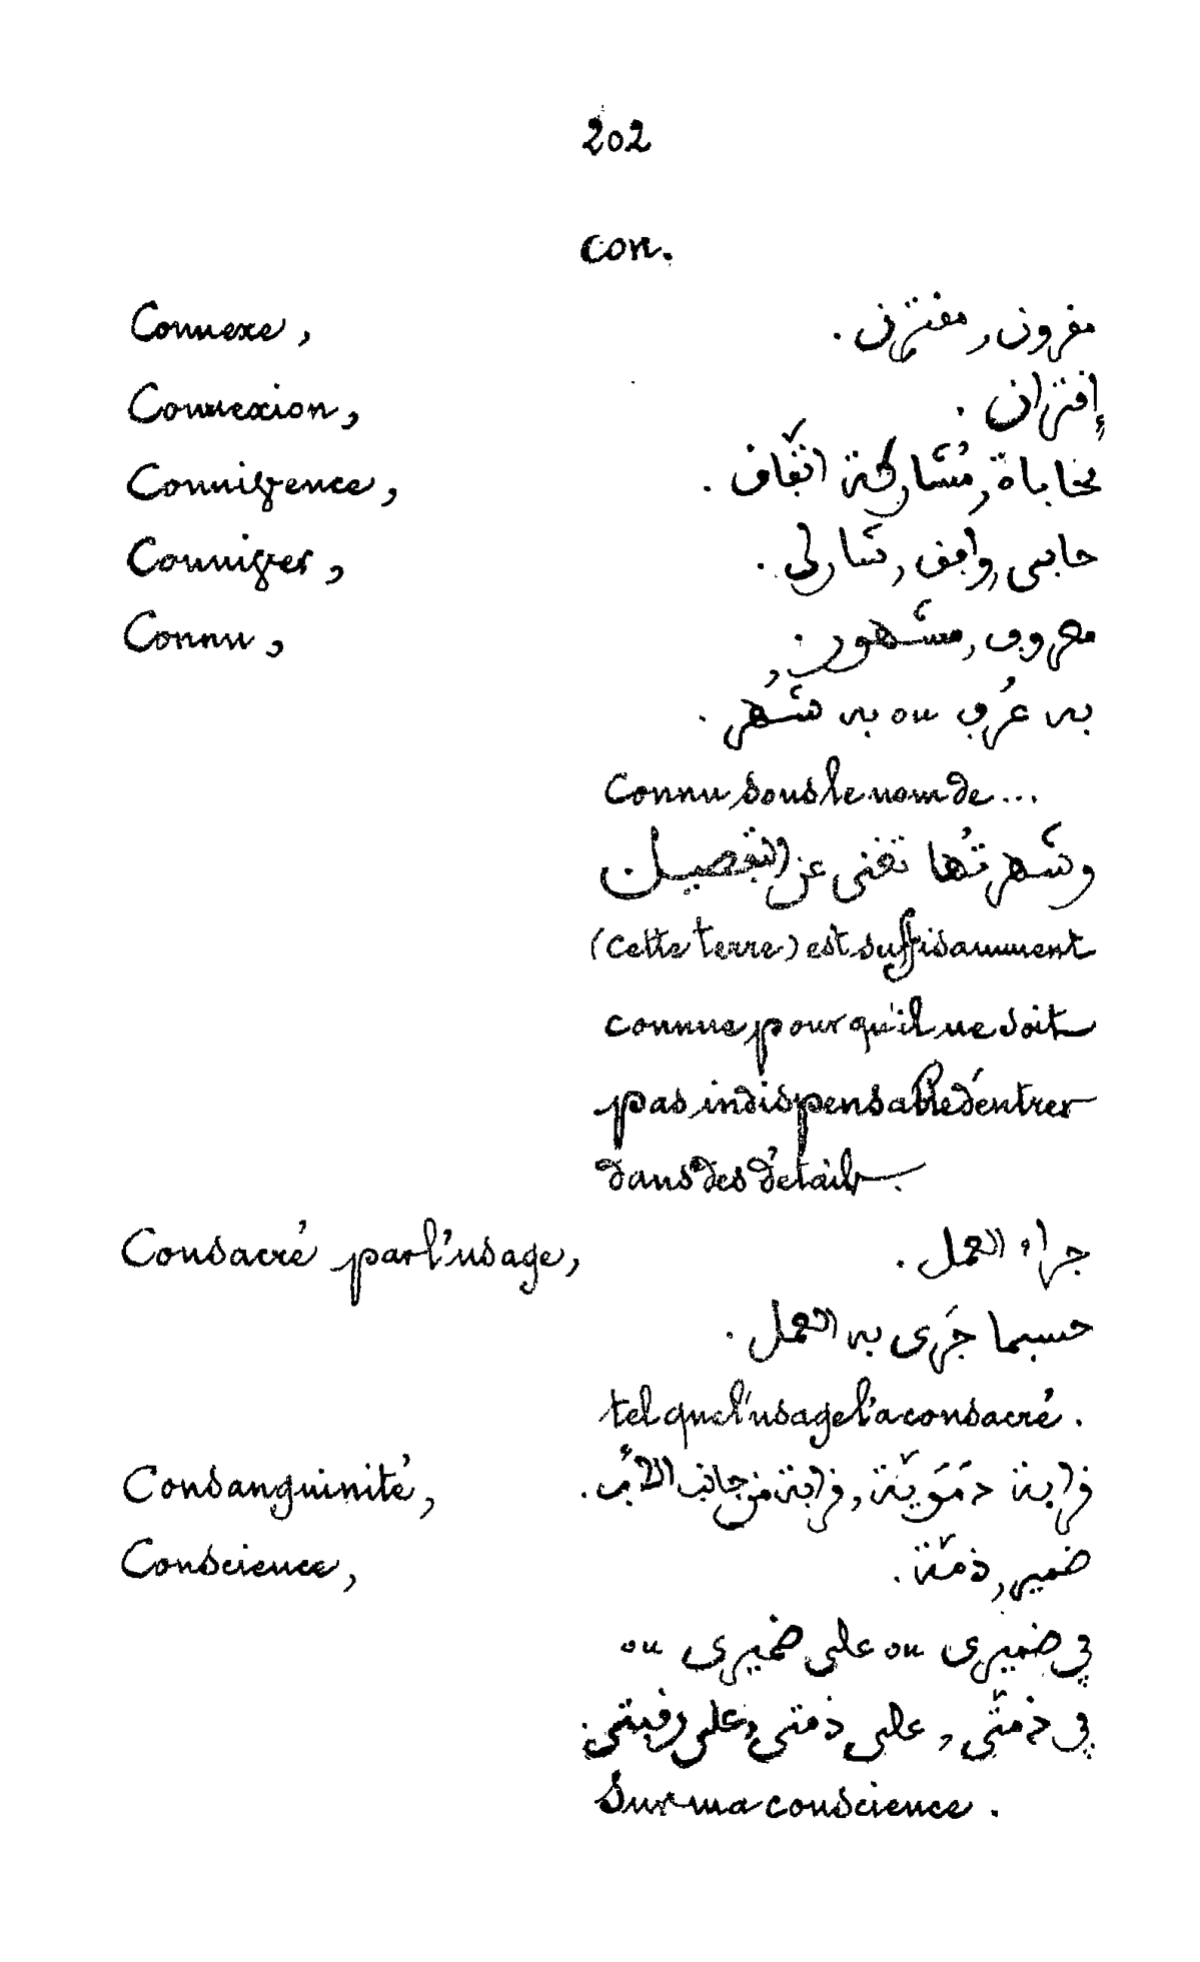 202
con.
Connexe, مقرون, مقترن.
Connexion, إقتران.
Connivence, مُشاركة اتّفاق.
Conniver, حابى, وافق, شارك.
Connu, معروف, مشهور.
به عُرِف ou به شُهِر.
Connu sous le nom de...
وشهرتُها تغنى عن التفصيل
(cette terre) est suffisamment
connue pour qu'il ne soit
pas indispensable d'entrer
dans des détails.
Consacré par l'usage, العمل.
حسبما جَرَى به العمل.
tel que l'usage l'a consacré.
Consanguinité, قرابة دَمَوِيّة, قرابة من جانب الأب.
Conscience, ضمير, ذمّة.
في ضميرى ou على ضميرى ou
في ذمتّى, على ذمتى,
sur ma conscience.